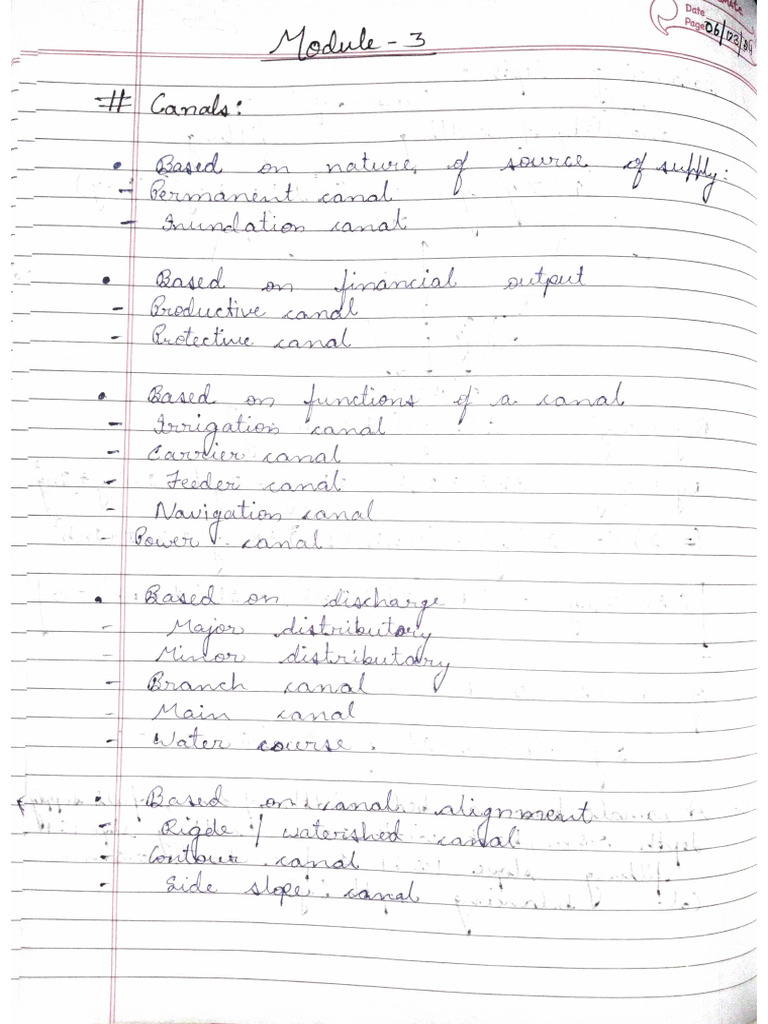 Date
Page
Module - 3
# Canals:
• Based on nature of source of supply:
- Permanent canal
- Inundation canal
• Based on financial output
- Productive canal
- Protective canal
• Based on functions of a canal
- Irrigation canal
- Carrier canal
- Feeder canal
- Navigation canal
- Power canal
• Based on discharge
- Major distributory
- Minor distributary
- Branch canal
- Main canal
- Water course.
• Based on canal alignment
- Rigde / watershed canal
- Contour canal
- Side slope canal